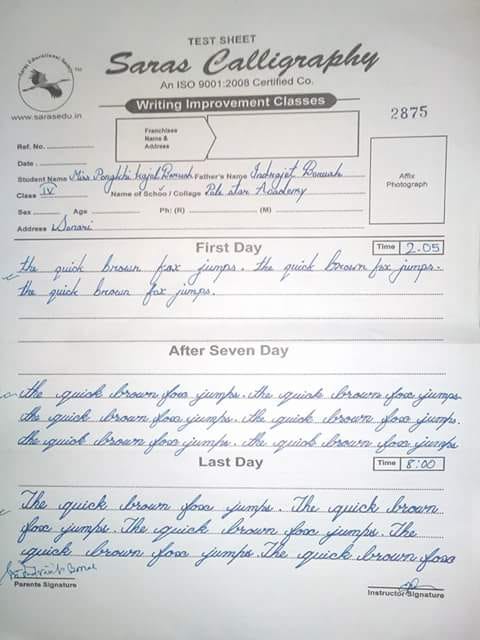 TEST SHEET
Saras Calligraphy
An ISO 9001:2008 Certified Co.
Writing Improvement Classes
Saras Educational
www.sarasedu.in
2875
Franchisee
Name &
Address
Ref. No.
Date
Affix
Photograph
Student Name Miss Father's Name Indrajit
Class IV Name of School / Collage Pole star Academy
Sex Age Ph: (R) (M)
Address Sonari
First Day Time 2.05
the quick brown fox jumps. the quick brown fox jumps.
the quick brown fox jumps.
After Seven Day
the quick brown fox jumps. the quick brown fox jumps
the quick brown fox jumps. the quick brown fox jumps.
the quick brown fox jumps. the quick brown fox jumps
Last Day Time 8:00
The quick brown fox jumps. The quick brown
fox jumps. The quick brown fox jumps. The
quick brown fox jumps. The quick brown fox
Parents Signature
Instructor Signature